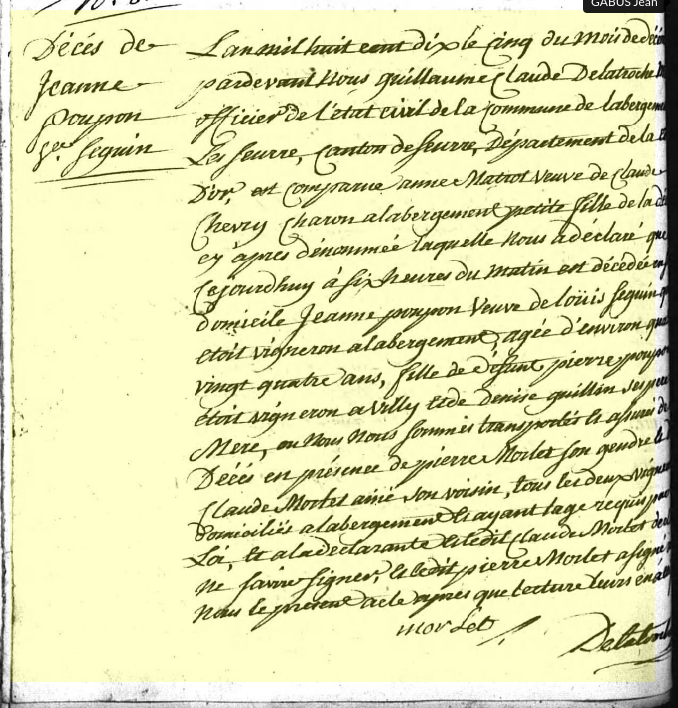 GABUS Jean
Décés de
Jeanne
poupon
Ve. Seguin
Lan mil huit cent dix le Cinq du mois de
pardevant nous guillaume Claude Delatroche
officier de l'état civil de la Commune de labergem
Les Seurre, Canton de Seurre, Département de la
D'or, est Comparue anne Matrot Veuve de Claude
Chevry Charon a labergement petite fille de la
cy àprès dénommée laquelle Nous a déclaré que
Cejourdhuy à six heures du matin est décédée
domicile Jeanne poupon Veuve de loüis Seguin
etoit vigneron a labergement, agée d'environ
vingt quatre ans, fille de défunt pierre poupon
étoit vigneron a Villy et de denise guillin ses
Mere, ou Nous Nous sommes transportés et assurés
Décés en présence de pierre Morlet son gendre et
Claude Morlet ainé son voisin, tous les deux
domiciliés a labergement et ayant lage requis
Loi, et a la déclarante et ledit Claude Morlet
ne savoir signer, et ledit pierre Morlet a signé
Nous le présent acte après que lecture leurs en
morlet